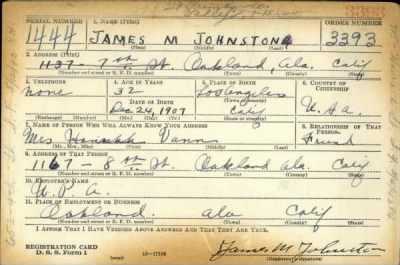 SERIAL NUMBER 1. NAME (Print) ORDER NUMBER 3393
1444 JAMES M JOHNSTON 3393
(First) (Middle) (Last)
2. ADDRESS (Print)
1137 - 7th St. Oakland, Ala. Calif
(Number and street or R. F. D. number) (Town) (County) (State)
3. TELEPHONE 4. AGE IN YEARS 5. PLACE OF BIRTH 6. COUNTRY OF CITIZENSHIP
none 32 Los Angeles
DATE OF BIRTH (Town or county)
Dec 24, 1907 Calif U.S.A.
(Mo.) (Day) (Yr.) (State or country)
7. NAME OF PERSON WHO WILL ALWAYS KNOW YOUR ADDRESS 8. RELATIONSHIP OF THAT PERSON
Mrs. Hannah Vann Friend
(Mr., Mrs., Miss) (First) (Middle) (Last)
9. ADDRESS OF THAT PERSON
1167 - 8th St. Oakland Ala Calif
(Number and street or R. F. D. number) (Town) (County) (State)
10. EMPLOYER'S NAME
W. P. A.
11. PLACE OF EMPLOYMENT OR BUSINESS
Oakland Ala Calif
(Number and street or R. F. D. number) (Town) (County) (State)
I AFFIRM THAT I HAVE VERIFIED ABOVE ANSWERS AND THAT THEY ARE TRUE.
REGISTRATION CARD
D. S. S. Form 1 (over) 16-17105 James M Johnston
(Registrant's signature)